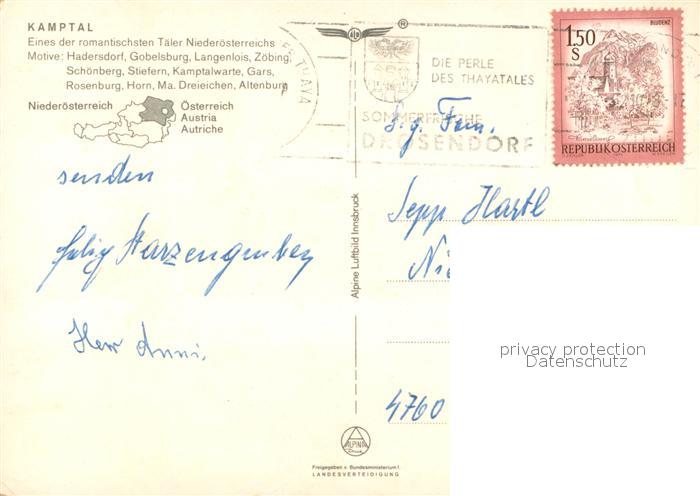 KAMPTAL
Eines der romantischsten Täler Niederösterreichs
Motive: Hadersdorf, Gobelsburg, Langenlois, Zöbing,
Schönberg, Stiefern, Kamptalwarte, Gars,
Rosenburg, Horn, Ma. Dreieichen, Altenburg
Niederösterreich
Österreich
Austria
Autriche
senden
Herr Anni.
Alpine Luftbild Innsbruck
ALPINA
Druck
Freigegeben v. Bundesministerium f.
LANDESVERTEIDIGUNG
DIE PERLE
DES THAYATALES
SOMMERFRISCHE
DROSENDORF
BLUDENZ
1.50
S
REPUBLIK ÖSTERREICH
Sg. Fam.
Sepp Hartl
Nie
4760
privacy protection
Datenschutz